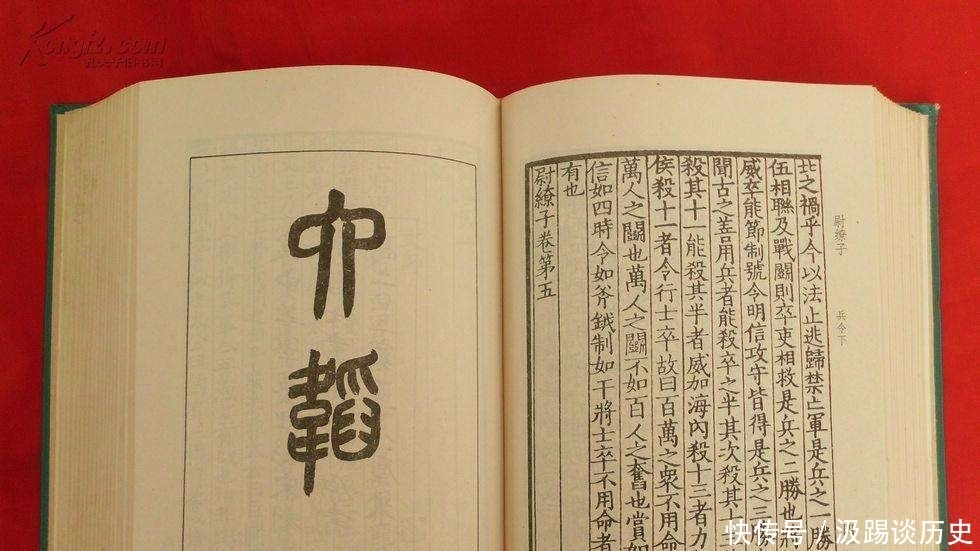 尉繚子 兵令下
北之禍乎今以法止逃歸禁亡軍是兵之一勝
伍相聯及戰鬭則卒吏相救是兵之二勝也將
威卒能節制號令明信攻守皆得是兵之三勝
聞古之善用兵者能殺卒之半其次殺其十
殺其十一能殺其半者威加海內殺十三者力
侯殺十一者令行士卒故曰百萬之衆不用命
萬人之鬭也萬人之鬭不如百人之奮也賞如
信如四時令如斧鉞制如干將士卒不用命者
有也
尉繚子卷第五
六韜
Kongfz.com
快传号 / 汲踢谈历史